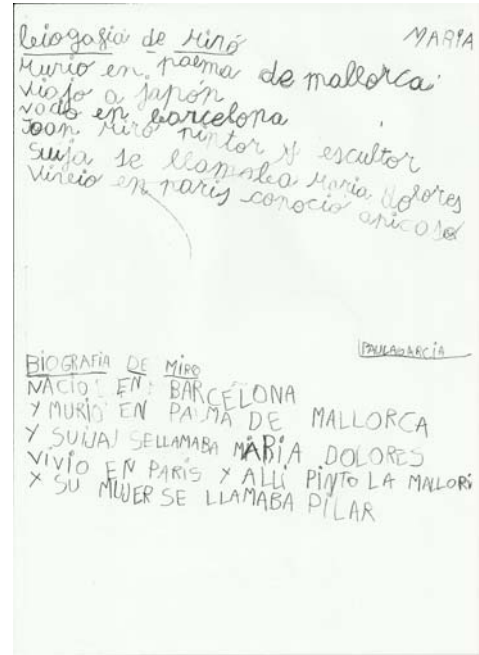 MARIA
biogafia de Miró
Murio en palma de mallorca
viajo a japón
nacio en barcelona
Joan Miró pintor y escultor
suija se llamaba Maria dolores
vivio en paris conocio apicaso
PAULA GARCÍA
BIOGRAFIA DE MIRO
NACIO EN BARCELONA
Y MURIO EN PALMA DE MALLORCA
Y SUIJA SELLAMABA MARIA DOLORES
VIVIO EN PARIS Y ALLI PINTO LA MALLORI
Y SU MUJER SE LLAMABA PILAR